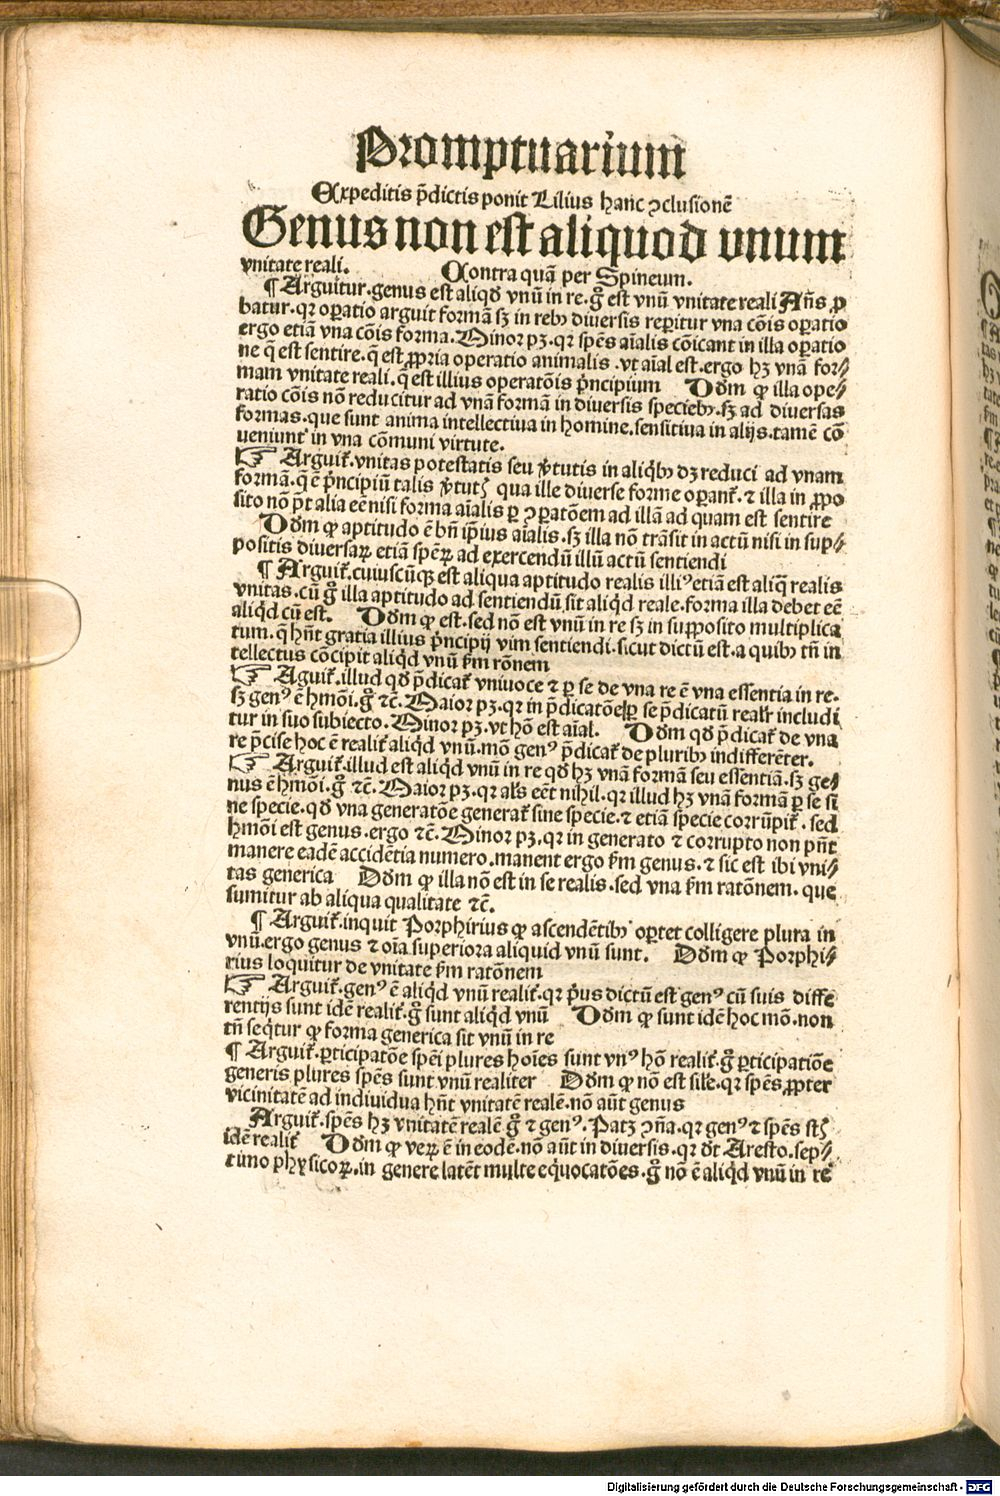 Promptuarium
Expeditis p̄dictis ponit Lilius hanc ꝯclusionē
Genus non est aliquod vnum
vnitate reali. Contra quā per Spineum.
¶ Arguitur.genus est aliqd̄ vnū in re.g̊ est vnū vnitate reali Añs ꝓ
batur.qꝛ oꝑatio arguit formā sꝫ in rebꝰ diuersis reꝑitur vna cōis oꝑatio
ergo etiā vna cōis forma. Minor pꝫ.qꝛ spēs aīalis cōicant in illa oꝑatio
ne q̄ est sentire.q̄ est ꝓpria operatio animalis.vt aīal est.ergo hꝫ vnā for⸗
mam vnitate reali.q̄ est illius operatōis p̄ncipium Dd̄m ꝙ illa ope⸗
ratio cōis nō reducitur ad vnā formā in diuersis speciebꝰ.sꝫ ad diuersas
formas.que sunt anima intellectiua in homine.sensitiua in alijs.tamē cō
ueniunt in vna cōmuni virtute.
☞ Arguit̄.vnitas potestatis seu v̄tutis in aliq̄bꝰ dꝫ reduci ad vnam
formā.q̄ ē p̄ncipiū talis v̄tutꝭ qua ille diuerse forme oꝑant̄.⁊ illa in ꝓpo
sito nō p̄t alia eē nisi forma aīalis ꝑ ꝯꝑatōem ad illā ad quam est sentire
Dd̄m ꝙ aptitudo ē bn̄ ip̄ius aīalis.sꝫ illa nō trāsit in actū nisi in sup⸗
positis diuersaꝝ etiā spēꝝ ad exercendū illū actū sentiendi
¶ Arguit̄.cuiuscūqꝫ est aliqua aptitudo realis illiꝰ etiā est aliq̄ realis
vnitas.cū g̊ illa aptitudo ad sentiendū sit aliq̄d reale.forma illa debet eē
aliq̄d cū est. Dd̄m ꝙ est.sed nō est vnū in re sꝫ in supposito multiplica
tum.q̄ hn̄t gratia illius p̄ncipij vim sentiendi.sicut dictū est.a quibꝰ tn̄ in
tellectus cōcipit aliq̄d vnū ẜm rōnem
☞ Aguit̄.illud qd̄ p̄dicat̄ vniuoce ⁊ ꝑ se de vna re ē vna essentia in re.
sꝫ genꝰ ē hmōi.g̊ ⁊c̄. Maior pꝫ.qꝛ in p̄dicatōe ꝑ se p̄dicatū realr̄ includi
tur in suo subiecto. Minor pꝫ.vt hō est aīal. Dd̄m qd̄ p̄dicat̄ de vna
re p̄cise hoc ē realit̄ aliq̄d vnū.mō genꝰ p̄dicat̄ de pluribꝰ indifferēter.
☞ Arguit̄.illud est aliq̄d vnū in re qd̄ hꝫ vnā formā seu essentiā.sꝫ ge⸗
nus ē hmōi.g̊ ⁊c̄. Maior pꝫ.qꝛ als̄ eēt nihil.qꝛ illud hꝫ vnā formā ꝑ se si
ne specie.qd̄ vna generatōe generat̄ sine specie.⁊ etiā specie corrūpit̄.sed
hmōi est genus.ergo ⁊c̄. Minor pꝫ.qꝛ in generato ⁊ corrupto non pn̄t
manere eadē accidētia numero.manent ergo ẜm genus.⁊ sic est ibi vni⸗
tas generica Dd̄m ꝙ illa nō est in se realis.sed vna ẜm ratōnem.que
sumitur ab aliqua qualitate ⁊c̄.
¶ Arguit̄.inquit Porphirius ꝙ ascendētibꝰ oꝑtet colligere plura in
vnū.ergo genus ⁊ oīa superiora aliquid vnū sunt. Dd̄m ꝙ Porphi⸗
rius loquitur de vnitate ẜm ratōnem
☞ Arguit̄.genꝰ ē aliq̄d vnū realit̄.qꝛ p̄us dictū est genꝰ cū suis diffe
rentijs sunt idē realit̄.g̊ sunt aliq̄d vnū Dd̄m ꝙ sunt idē hoc mō.non
tn̄ seq̄tur ꝙ forma generica sit vnū in re
¶ Arguit̄.ꝑticipatōe spēi plures hoīes sunt vnꝰ hō realit̄.g̊ ꝑticipatiōe
generis plures spēs sunt vnū realiter Dd̄m ꝙ nō est sil̄e.qꝛ spēs ꝓpter
vicinitatē ad indiuidua hn̄t vnitatē realē.nō aūt genus
Arguit̄.spēs hꝫ vnitatē realē g̊ ⁊ genꝰ. Patꝫ ꝯn̄a.qꝛ genꝰ ⁊ spēs sꝭ
idē realit̄ Dd̄m ꝙ veꝝ ē in eodē.nō aūt in diuersis.qꝛ dt̄ Aresto.sep⸗
timo phẏsicoꝝ.in genere latēt multe eq̄uocatōes.g̊ nō ē aliq̄d vnū in re
Digitalisierung gefördert durch die Deutsche Forschungsgemeinschaft - DFG